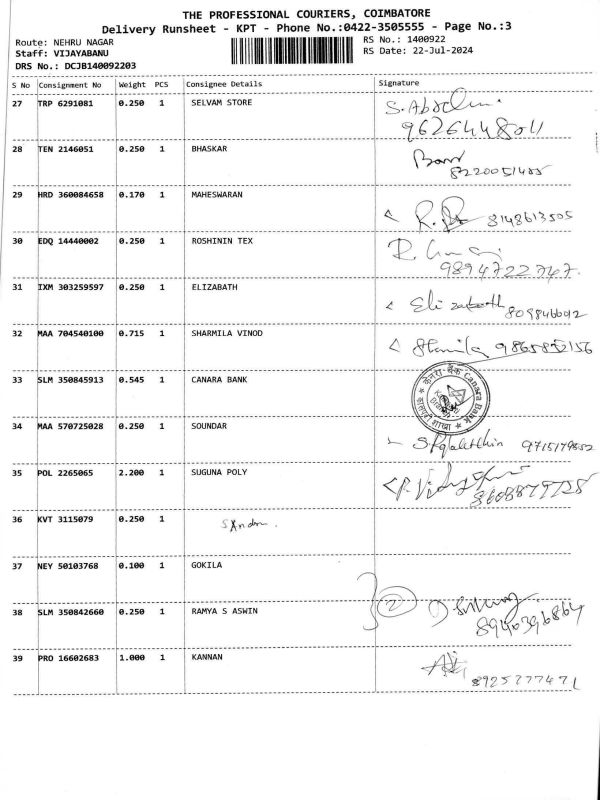 THE PROFESSIONAL COURIERS, COIMBATORE
Delivery Runsheet - KPT - Phone No.:0422-3505555 - Page No.:3
Route: NEHRU NAGAR
RS No.: 1400922
Staff: VIJAYABANU
RS Date: 22-Jul-2024
DRS No.: DCJB140092203
S No Consignment No Weight PCS Consignee Details Signature
27 TRP 6291081 0.250 1 SELVAM STORE
9626448041
28 TEN 2146051 0.250 1 BHASKAR
8220051485
29 HRD 360084658 0.170 1 MAHESWARAN
8148613505
30 EDQ 14440002 0.250 1 ROSHININ TEX
9894722747
31 IXM 303259597 0.250 1 ELIZABATH
Elizabath
32 MAA 704540100 0.715 1 SHARMILA VINOD
33 SLM 350845913 0.545 1 CANARA BANK
केनरा बैंक Canara Bank
34 MAA 570725028 0.250 1 SOUNDAR
35 POL 2265065 2.200 1 SUGUNA POLY
36 KVT 3115079 0.250 1
37 NEY 50103768 0.100 1 GOKILA
2
38 SLM 350842660 0.250 1 RAMYA S ASWIN
8940396864
39 PRO 16602683 1.000 1 KANNAN
8925277471